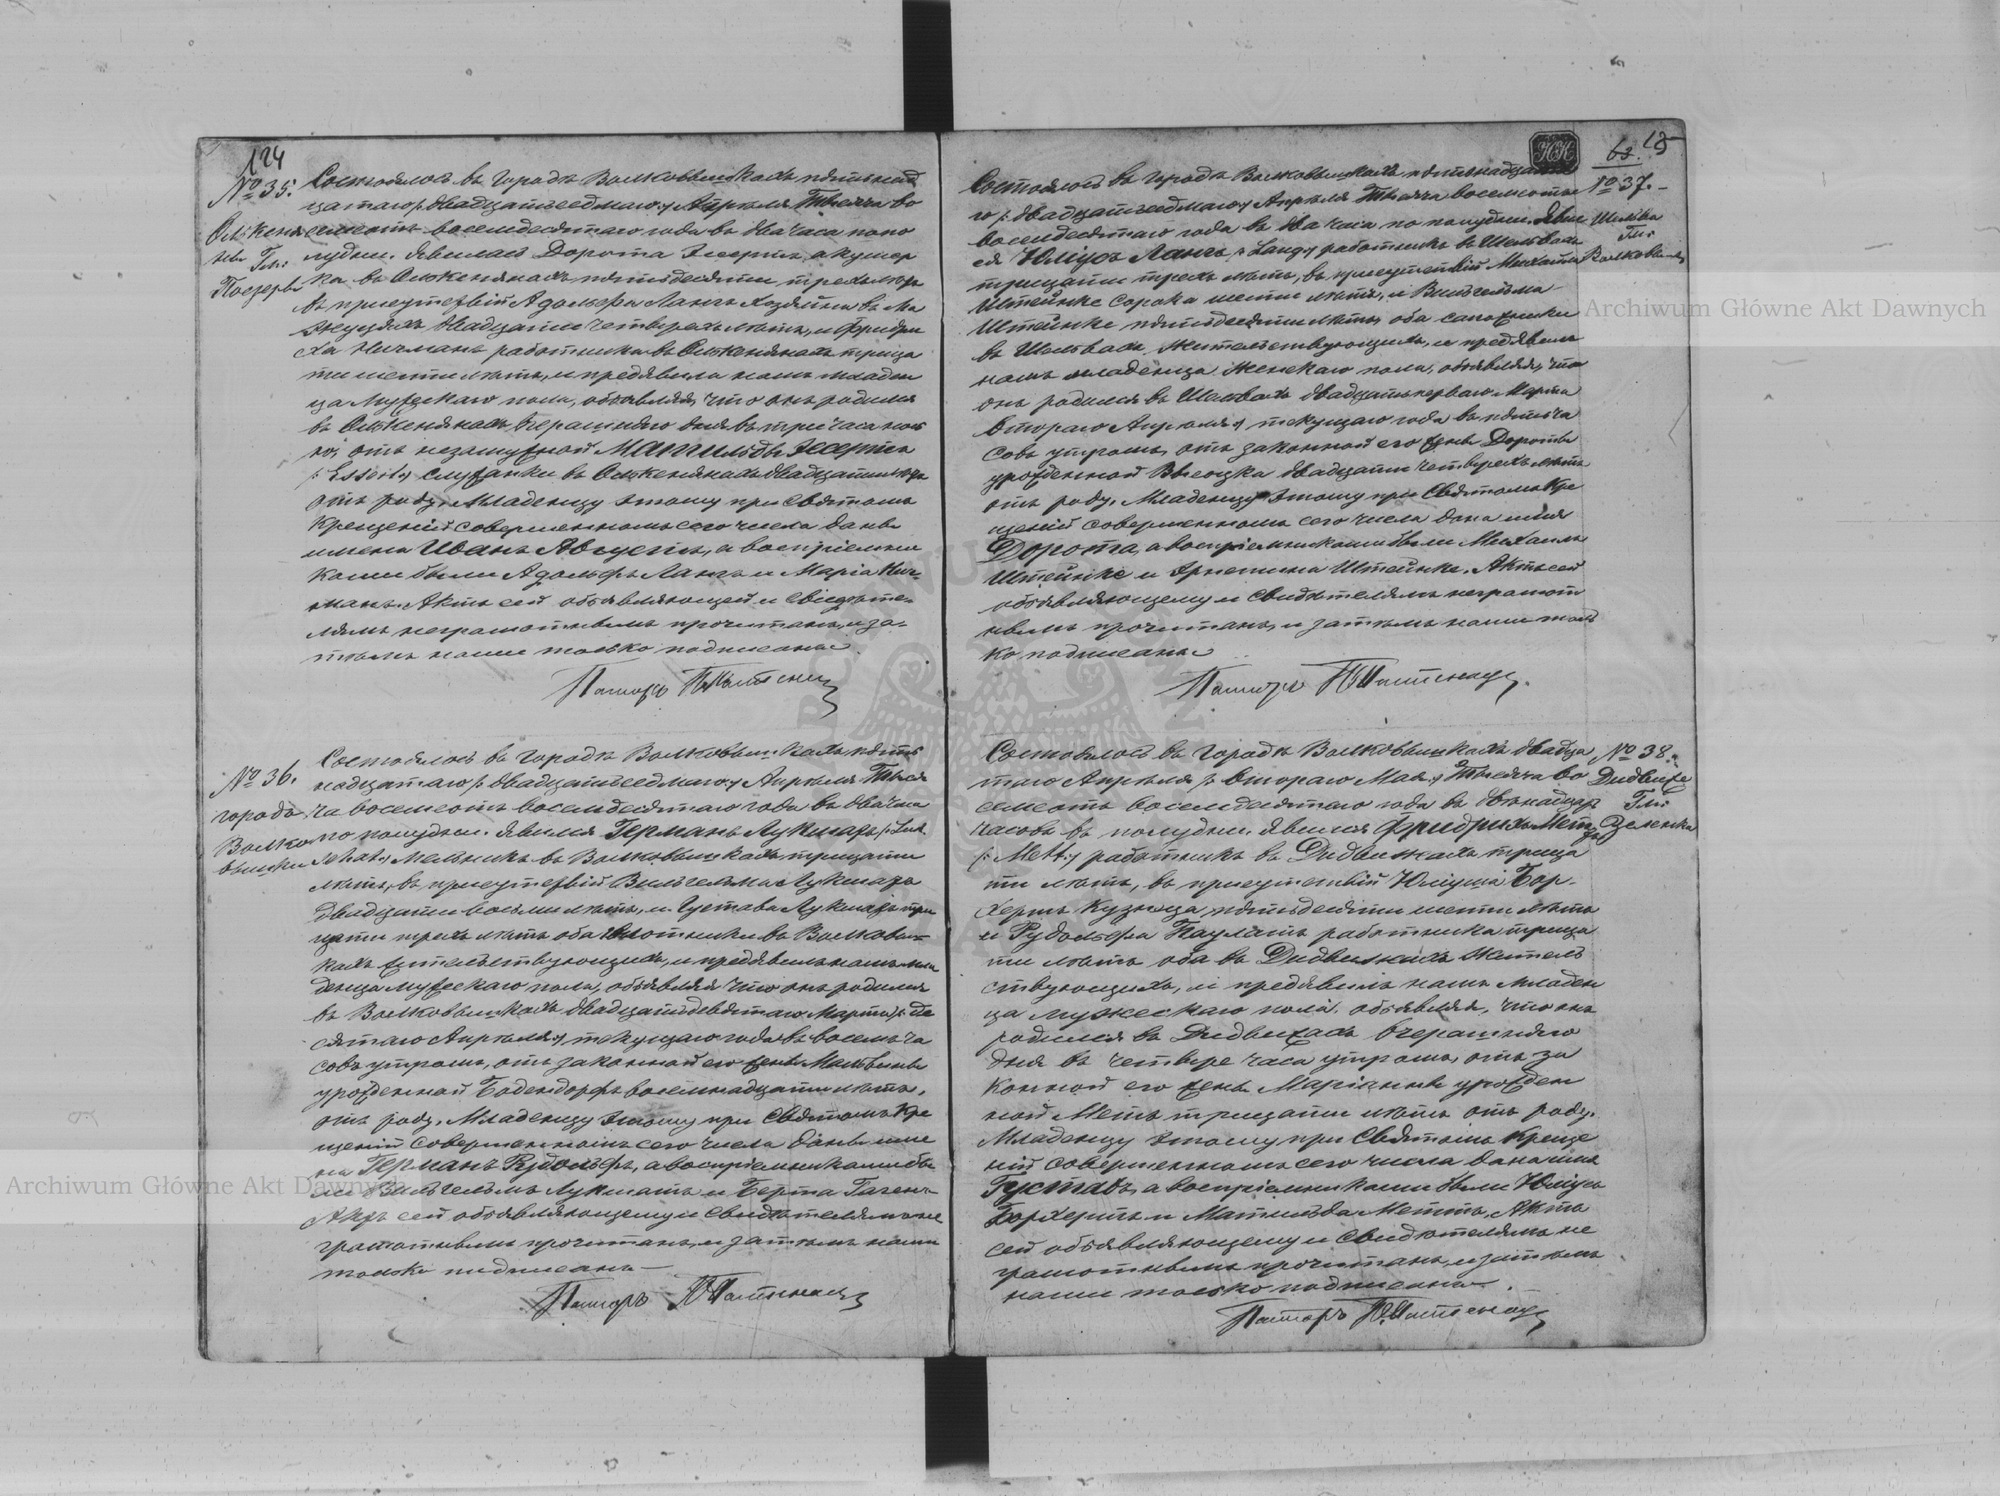 124
№ 35.
Состоялось въ городѣ Волковышкахъ пятьнад
цатаго /: двадцатьседмаго :/ Апрѣля Тысяча во
семьсотъ восемьдесятаго года въ два часа попо
лудни. Явилась Дорота Эссертъ, акушер
ка въ пятидесяти трехъ лѣтъ
въ присутствіи Адольфа Лангъ хозяина въ
двадцати четырехъ лѣтъ, и Фридри
ха работника въ трица
ти шести лѣтъ, и предявила намъ младен
ца мужескаго пола, объявляя, что онъ родился
въ вчерашняго дня въ три часа
отъ незамужной Матильды Эссертъ
/: Essert :/ служанки въ двадцати лѣтъ
отъ роду. Младенцу этому при Святомъ
Крещеніи совершенномъ сего числа даны
имена Иванъ Августъ, а воспріемни
ками были Адольфъ Лангъ и Марія
Актъ сей объявляющей и Свидѣте-
лямъ неграмотнымъ прочитанъ, и за-
тѣмъ нами только подписанъ
Пасторъ
№ 36.
городъ
Волко
вышки
Состоялось въ городѣ Волковышкахъ, пять
надцатаго /: двадцатьседмаго :/ Апрѣля Тыся
ча восемьсотъ восемьдесятаго года въ два часа
по полудни. Явился Германъ Лукшатъ /: Luk
schat :/ Мельникъ въ Волковышкахъ, трицати
лѣтъ, въ присутствіи Вильгельма Лукшатъ
двадцати восьми лѣтъ, и Густава Лукшатъ три
цати трехъ лѣтъ оба плотники въ Волковыш
кахъ жительствующихъ, и предявилъ намъ мла
денца мужескаго пола, объявляя что онъ родился
въ Волковышкахъ двадцатьдевятаго Марта /: де
сятаго Апрѣля :/ текущаго года въ восемь ча
совъ утромъ, отъ законной его жены
урожденной Бодендорфъ восемнадцати лѣтъ,
отъ роду. Младенцу этому при Святомъ Кре
щеніи совершенномъ сего числа даны име
на Германъ Рудольфъ, а воспріемниками бы
ли Вильгельмъ Лукшатъ и Берта
Актъ сей объявляющему и Свидѣтелямъ не
грамотнымъ прочитанъ, и затѣмъ нами
только подписанъ
Пасторъ
НК
63.
125
№ 37.
Шельва
Гм:
Волковышки
Состоялось въ городѣ Волковышкахъ пятьнадцата
го /: двадцатьседмаго :/ Апрѣля Тысяча восемьсотъ
восемдесятаго года въ два часа по полудни. Явил
ся Юліусъ Лангъ, /: Lang :/ работникъ въ Шельвахъ
трицати трехъ лѣтъ, въ присутствіи Михаила
Штейнке сорока шести лѣтъ, и Вильгельма
Штейнке пятидесяти лѣтъ, оба сапожники
въ Шельвахъ жительствующихъ, и предявилъ
намъ младенца женскаго пола, объявляя, что
онъ родился въ Шельвахъ двадцатьперваго Марта
/: втораго Апрѣля :/ текущаго года въ пять ча
совъ утромъ, отъ законной его жены Дороты
урожденной двадцати четырехъ лѣтъ
отъ роду. Младенцу этому при Святомъ Кре
щеніи совершенномъ сего числа дано имя
Дорота, а воспріемниками были Михаилъ
Штейнке и Эрнестина Штейнке. Актъ сей
объявляющему и Свидѣтелямъ неграмот
нымъ прочитанъ, и затѣмъ нами толь
ко подписанъ
Пасторъ
№ 38.
Дидвиже
Гм:
Зеленка
Состоялось въ городѣ Волковышкахъ двадца
таго Апрѣля /: втораго Мая :/ Тысяча во
семьсотъ восемдесятаго года въ двѣнадцать
часовъ въ полудни. Явился Фридрихъ Меттъ
/: Mett :/ работникъ въ Дидвижахъ трица
ти лѣтъ, въ присутствіи Юліуша Бор-
хертъ кузнеца, пятьдесяти шести лѣтъ
и Рудольфа Паулатъ работника трица
ти лѣтъ оба въ Дидвижахъ житель
ствующихъ, и предявилъ намъ младен
ца мужескаго пола, объявляя, что онъ
родился въ Дидвижахъ вчерашняго
дня въ четыре часа утромъ, отъ за
конной его жены Маріанны урожден
ной Метъ трицати лѣтъ отъ роду.
Младенцу этому при Святомъ Креще
ніи совершенномъ сего числа дано имя
Густавъ, а воспріемниками были Юліусъ
Борхертъ и Матильда Меттъ. Актъ
сей объявляющему и Свидѣтелямъ не
грамотнымъ прочитанъ, и затѣмъ
нами только подписанъ
Пасторъ
Archiwum Główne Akt Dawnych
Archiwum Główne Akt Dawnych